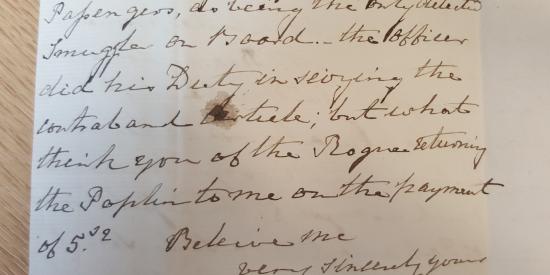 Passengers, as being the only detected
Smuggler on Board. – the officer
did his Duty in seizing the
contraband Article; but what
think you of the Rogue returning
the Poplin to me on the payment
of 5.s
Beleive me
very sincerely yours